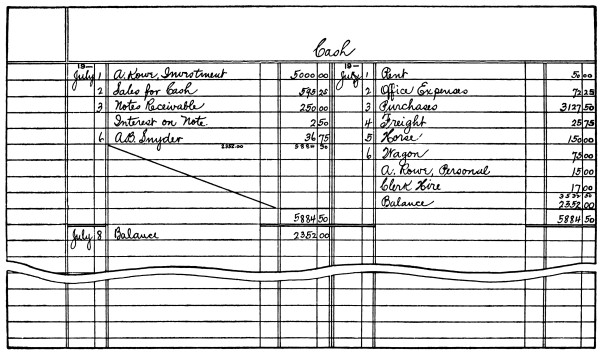 Cash
19— 19—
July 1 A. Rowe, Investment 5000 00 July 1 Rent 50 00
2 Sales for Cash 595 25 2 Office Expenses 72 25
3 Notes Receivable 250 00 3 Purchases 3127 50
Interest on Note 2 50 4 Freight 25 75
6 A.B. Snyder 36 75 5 Horse 150 00
2352.00 5884 50 6 Wagon 75 00
A. Rowe, Personal 15 00
Clerk Hire 17 00
3532 50
Balance 2352 00
5884 50 5884 50
July 8 Balance 2352 00